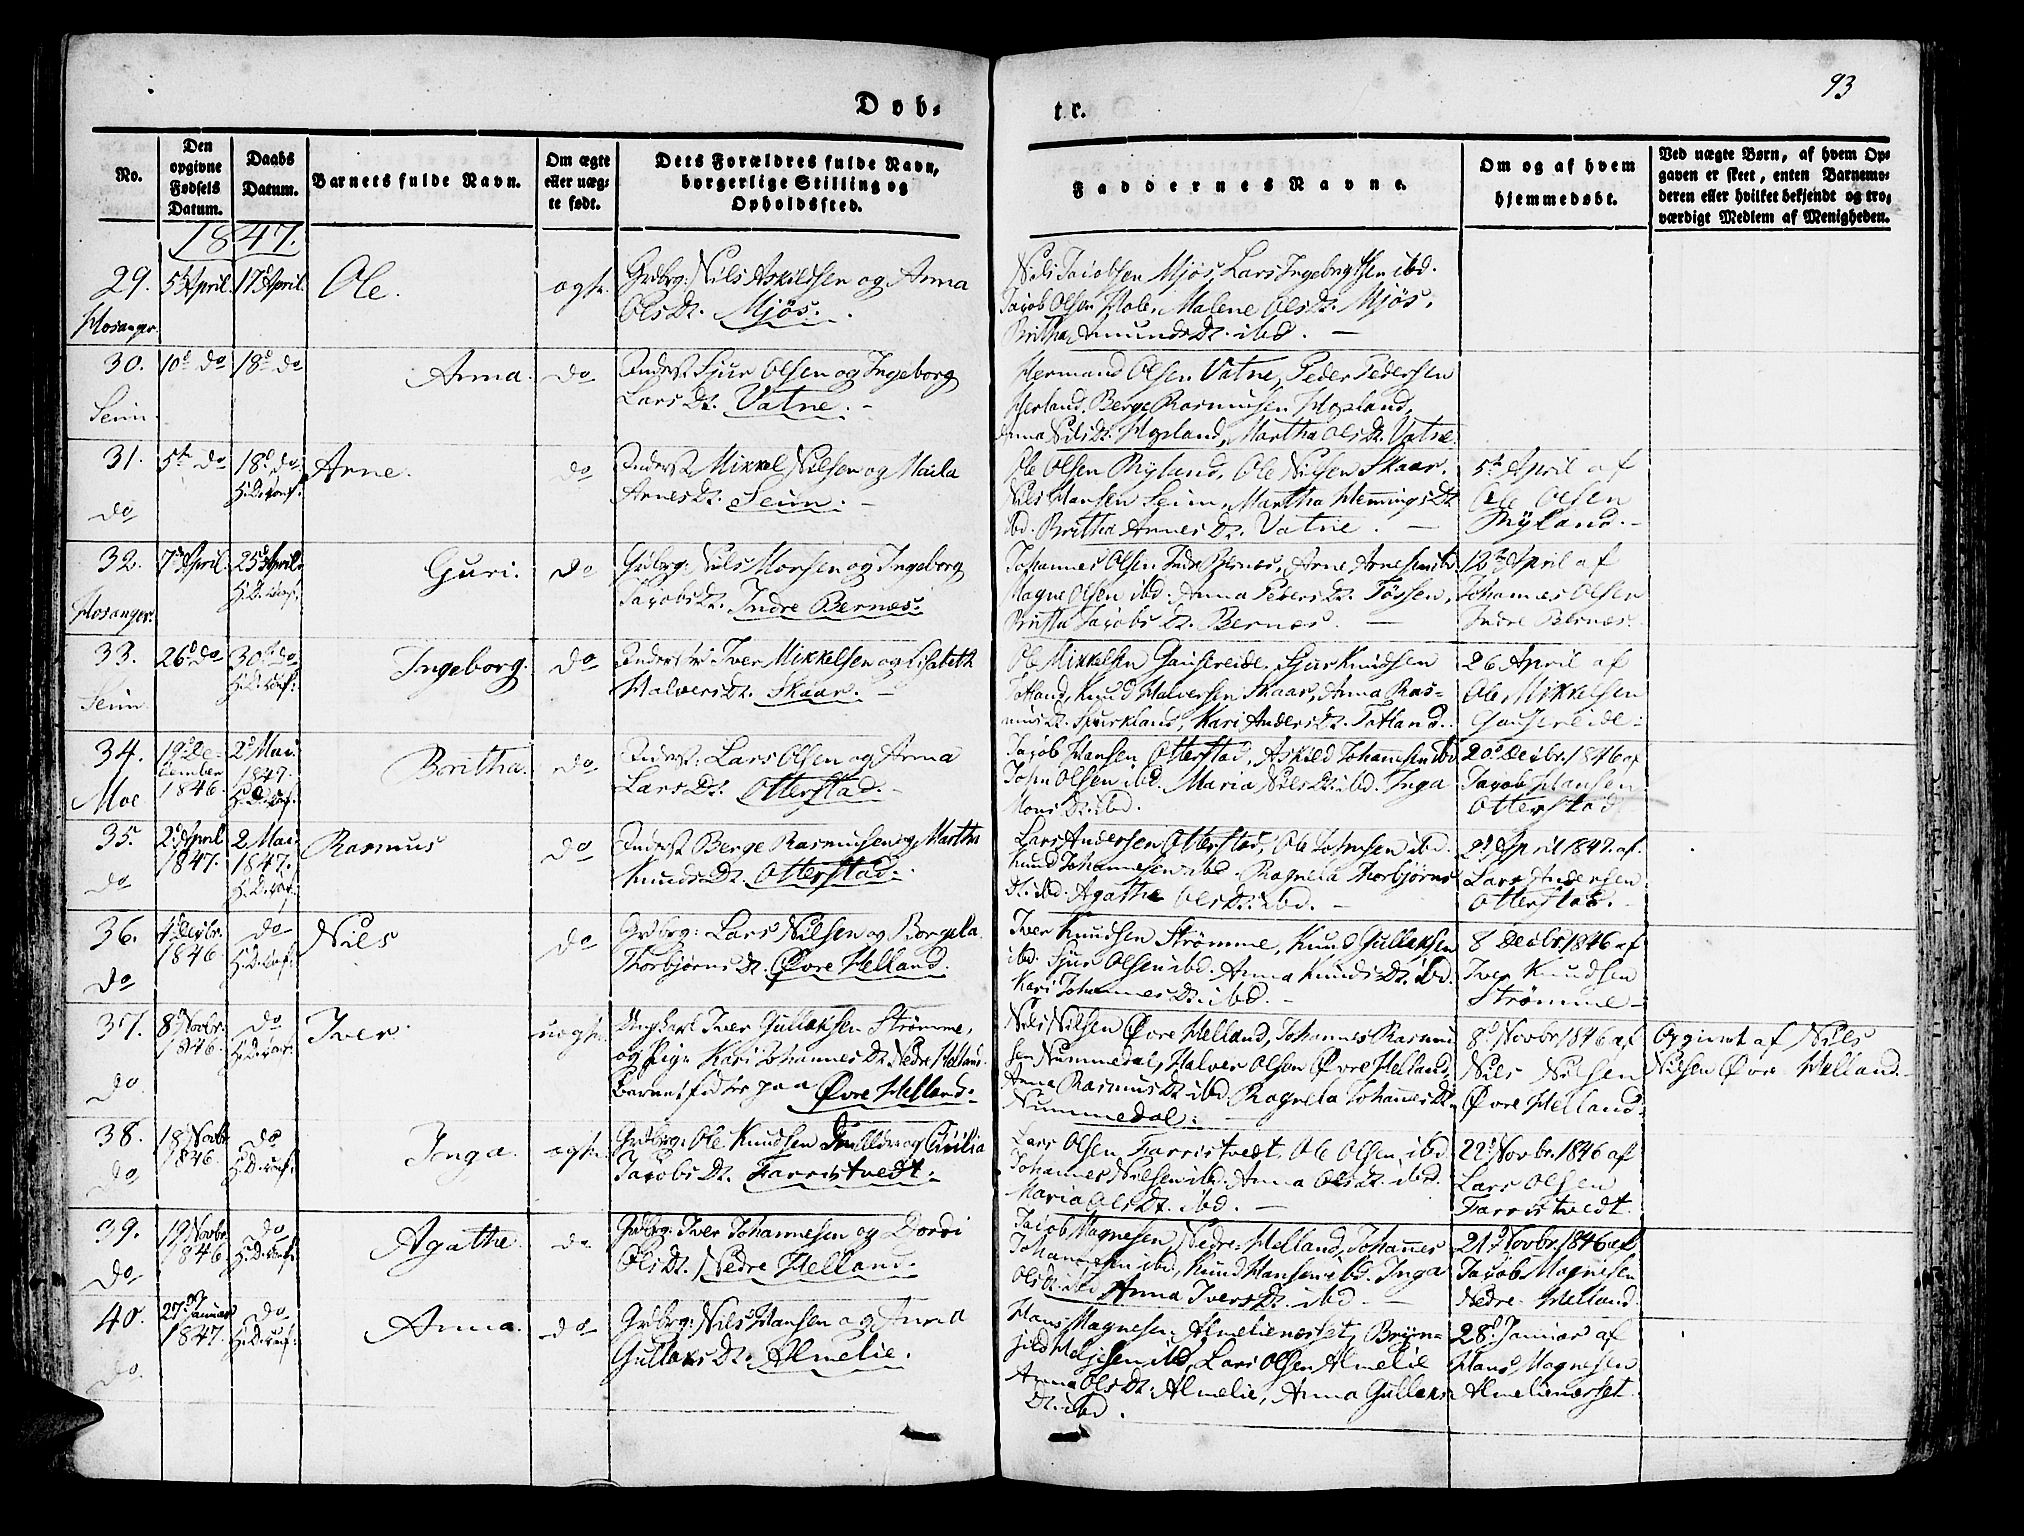 93
Døb-
te.
No.
Den opgivne Fødsels Datum.
Daabs Datum.
Barnets fulde Navn.
Om ægte eller uægte født.
Dets Forældres fulde Navn, borgerlige Stilling og Opholdssted.
Faddernes Navne.
Om og af hvem hjemmedøbt.
Ved uægte Børn, af hvem Opgaven er skeet, enten Barnemoderen eller hvilket bekjendt og troværdigt Medlem af Menigheden.
1847.
29. 5t April 17d April Ole. ægte. Grdbrg: Nils Askildsen og Anna
Hosanger. Olsdt. Mjøs.
Nils Jacobsen Mjøs, Lars Ingebrigtsen ibd.
Jacob Olsen Hole, Malene Olsdt. Mjøs,
Britha Amundsdt. ibd.
30. 10d do 18d do Anna. do Inderst Sjur Olsen og Ingeborg
Seim. Larsdt. Vatne.
Hermand Olsen Vatne, Peder Pedersen
Herland, Berge Rasmusen Hopland,
Anna Nilsdt. Hopland, Martha Olsdt. Vatne.
31. 5t do 18d do Arne. do Inderst Mikkel Nilsen og Marta
do H.D. conf: Arnesdt. Seim.
Ole Olsen Ryland, Ole Nilsen Skaar,
Nils Hansen Seim, Martha Hemingsdt.
ibd. Britha Arnesdt. Vatne.
5t April af
Ole Olsen
Ryland.
32. 7d April 25d April Guri. do Grdbrg: Nils Monsen og Ingeborg
Hosanger. H.D. conf: Jacobsdt. Indre Bernæs.
Johannes Olsen Indre Bernæs, Arne Arnesen ibd.
Magne Olsen ibd. Anna Pedersdt. Tøssen,
Britha Jacobsdt. Bernæs.
12te April af
Johannes Olsen
Indre Bernæs.
33. 26d do 30d do Ingeborg. do Inderst Iver Mikkelsen og Lisabeth
Seim H.D. conf: Halversdt. Skaar.
Ole Mikkelsen Gausereide, Sjur Knudsen
Tatland, Knud Halversen Skaar, Anna Ras-
musdt. Spurkland, Kari Andersdt. Tatland.
26 April af
Ole Mikkelsen
Gausereide.
34. 19d De- 2d Mai Boritha. do Inderst: Lars Olsen og Anna
cember 1847. Larsdt. Otterstad.
Moe. 1846. H.D. conf:
Jacob Hansen Otterstad, Askild Johannesen ibd
John Olsen ibd. Maria Nilsdt. ibd. Inga
Monsdt. ibd.
20d Decbr. 1846 af
Jacob Hansen
Otterstad
35. 2d April 2 Mai Rasmus do Inderst Berge Rasmusen og Martha
do 1847. 1847. Knudsdt. Otterstad.
H.D. conf:
Lars Andersen Otterstad, Ole Johnsen ibd.
Knud Johannesen ibd. Ragnela Thorbjørns-
dt. ibd. Agathe Olsdt. ibd.
2d April 1847. af
Lars Andersen
Otterstad.
36. Decbr. do Nils do Grdbrg: Lars Nilsen og Borgela
do 1846 H.D. conf: Thorbjørnsdt. Øvre Helland.
Iver Knudsen Strømme, Knud Gullaksen
ibd. Sjur Olsen ibd. Anna Knudsdt. ibd.
Kari Johannesdt. ibd.
8 Decbr. 1846 af
Iver Knudsen
Strømme
37. 8d Novbr. do Iver. uægte. Ungkarl Iver Gullaksen Strømme,
do 1846. H.D. conf: og Pige Kari Johannesdt. Nedre Helland.
Barnet født paa Øvre Helland.
Nils Nilsen Øvre Helland, Johannes Rasmu-
sen Nummedal, Halver Olsen Øvre Helland,
Anna Rasmusdt. ibd. Ragnela Johannesdt.
Nummedal.
8d Novbr. 1846 af
Nils Nilsen
Øvre Helland.
Opgivet af Nils
Nilsen Øvre Helland.
38. 18 Novbr do Inga. ægte. Grdbrg: Ole Knudsen og Cicilia
do 1846. H.D. conf: Jacobsdt. Farristvedt.
Lars Olsen Farristvedt, Ole Olsen ibd
Johannes Nilsen ibd. Anna Olsdt. ibd.
Maria Olsdt. ibd.
22d Novbr. 1846 af
Lars Olsen
Farristvedt.
39. 19 Novbr do Agathe. do Grdbrg: Iver Johannesen og Dordi
do 1846 H.D. conf: Olsdt. Nedre Helland.
Jacob Magnesen Nedre Helland, Johannes
Johannesen ibd, Knud Hansen ibd. Inga
Olsdt. ibd Anna Iversdt. ibd
21d Novbr. 1846 af
Jacob Magnesen
Nedre Helland
40. 27de Januar do Anna. do Grdbrg: Nils Hansen og Anna
do. 1847. H.D. conf: Gullaksdt. Almelie.
Hans Magnesen Almelienæsset, Bryn-
jild Heljesen ibd, Lars Olsen Almelie
Anna Olsdt. Almelie, Anna Gullaks-
dt. ibd.
28d Januar af
Hans Magnesen
Almelienæsset.